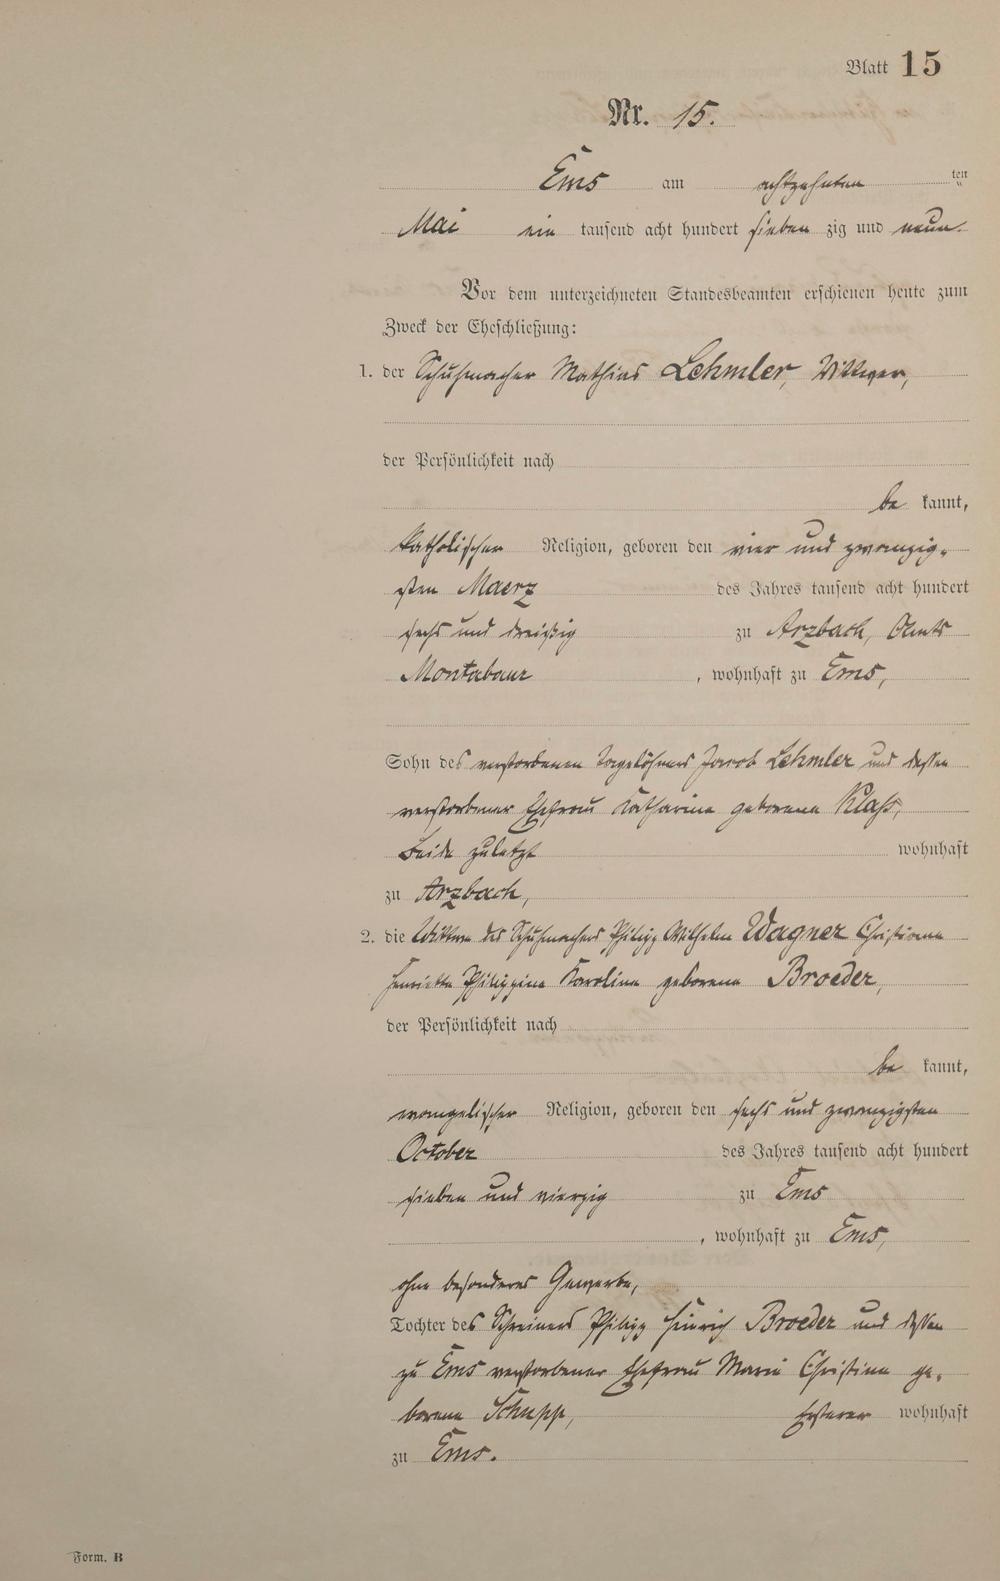 Blatt 15
Nr. 15.
Ems am achtzehnten ten
Mai ein tausend acht hundert sieben zig und neun.
Vor dem unterzeichneten Standesbeamten erschienen heute zum
Zweck der Eheschließung:
1. der Schuhmacher Mathias Lehmler, Wittwer,
der Persönlichkeit nach
be kannt,
katholischer Religion, geboren den vier und zwanzig-
sten Maerz des Jahres tausend acht hundert
sechs und dreißig zu Arzbach, Amts
Montabaur, wohnhaft zu Ems,
Sohn des verstorbenen Tagelöhners Jacob Lehmler und dessen
verstorbener Ehefrau Katharina geborene Klaß,
Beide zuletzt wohnhaft
zu Arzbach,
2. die Wittwe des Schuhmachers Philipp Wilhelm Wagner Christiane
Henriette Philippine Karoline geborene Broeder,
der Persönlichkeit nach
be kannt,
evangelischer Religion, geboren den sechs und zwanzigsten
October des Jahres tausend acht hundert
sieben und vierzig zu Ems
, wohnhaft zu Ems,
ohne besonderes Gewerbe,
Tochter des Schreiners Philipp Heinrich Broeder und dessen
zu Ems verstorbener Ehefrau Maria Christina ge-
borene Schupp, Ersterer wohnhaft
zu Ems.
Form. B